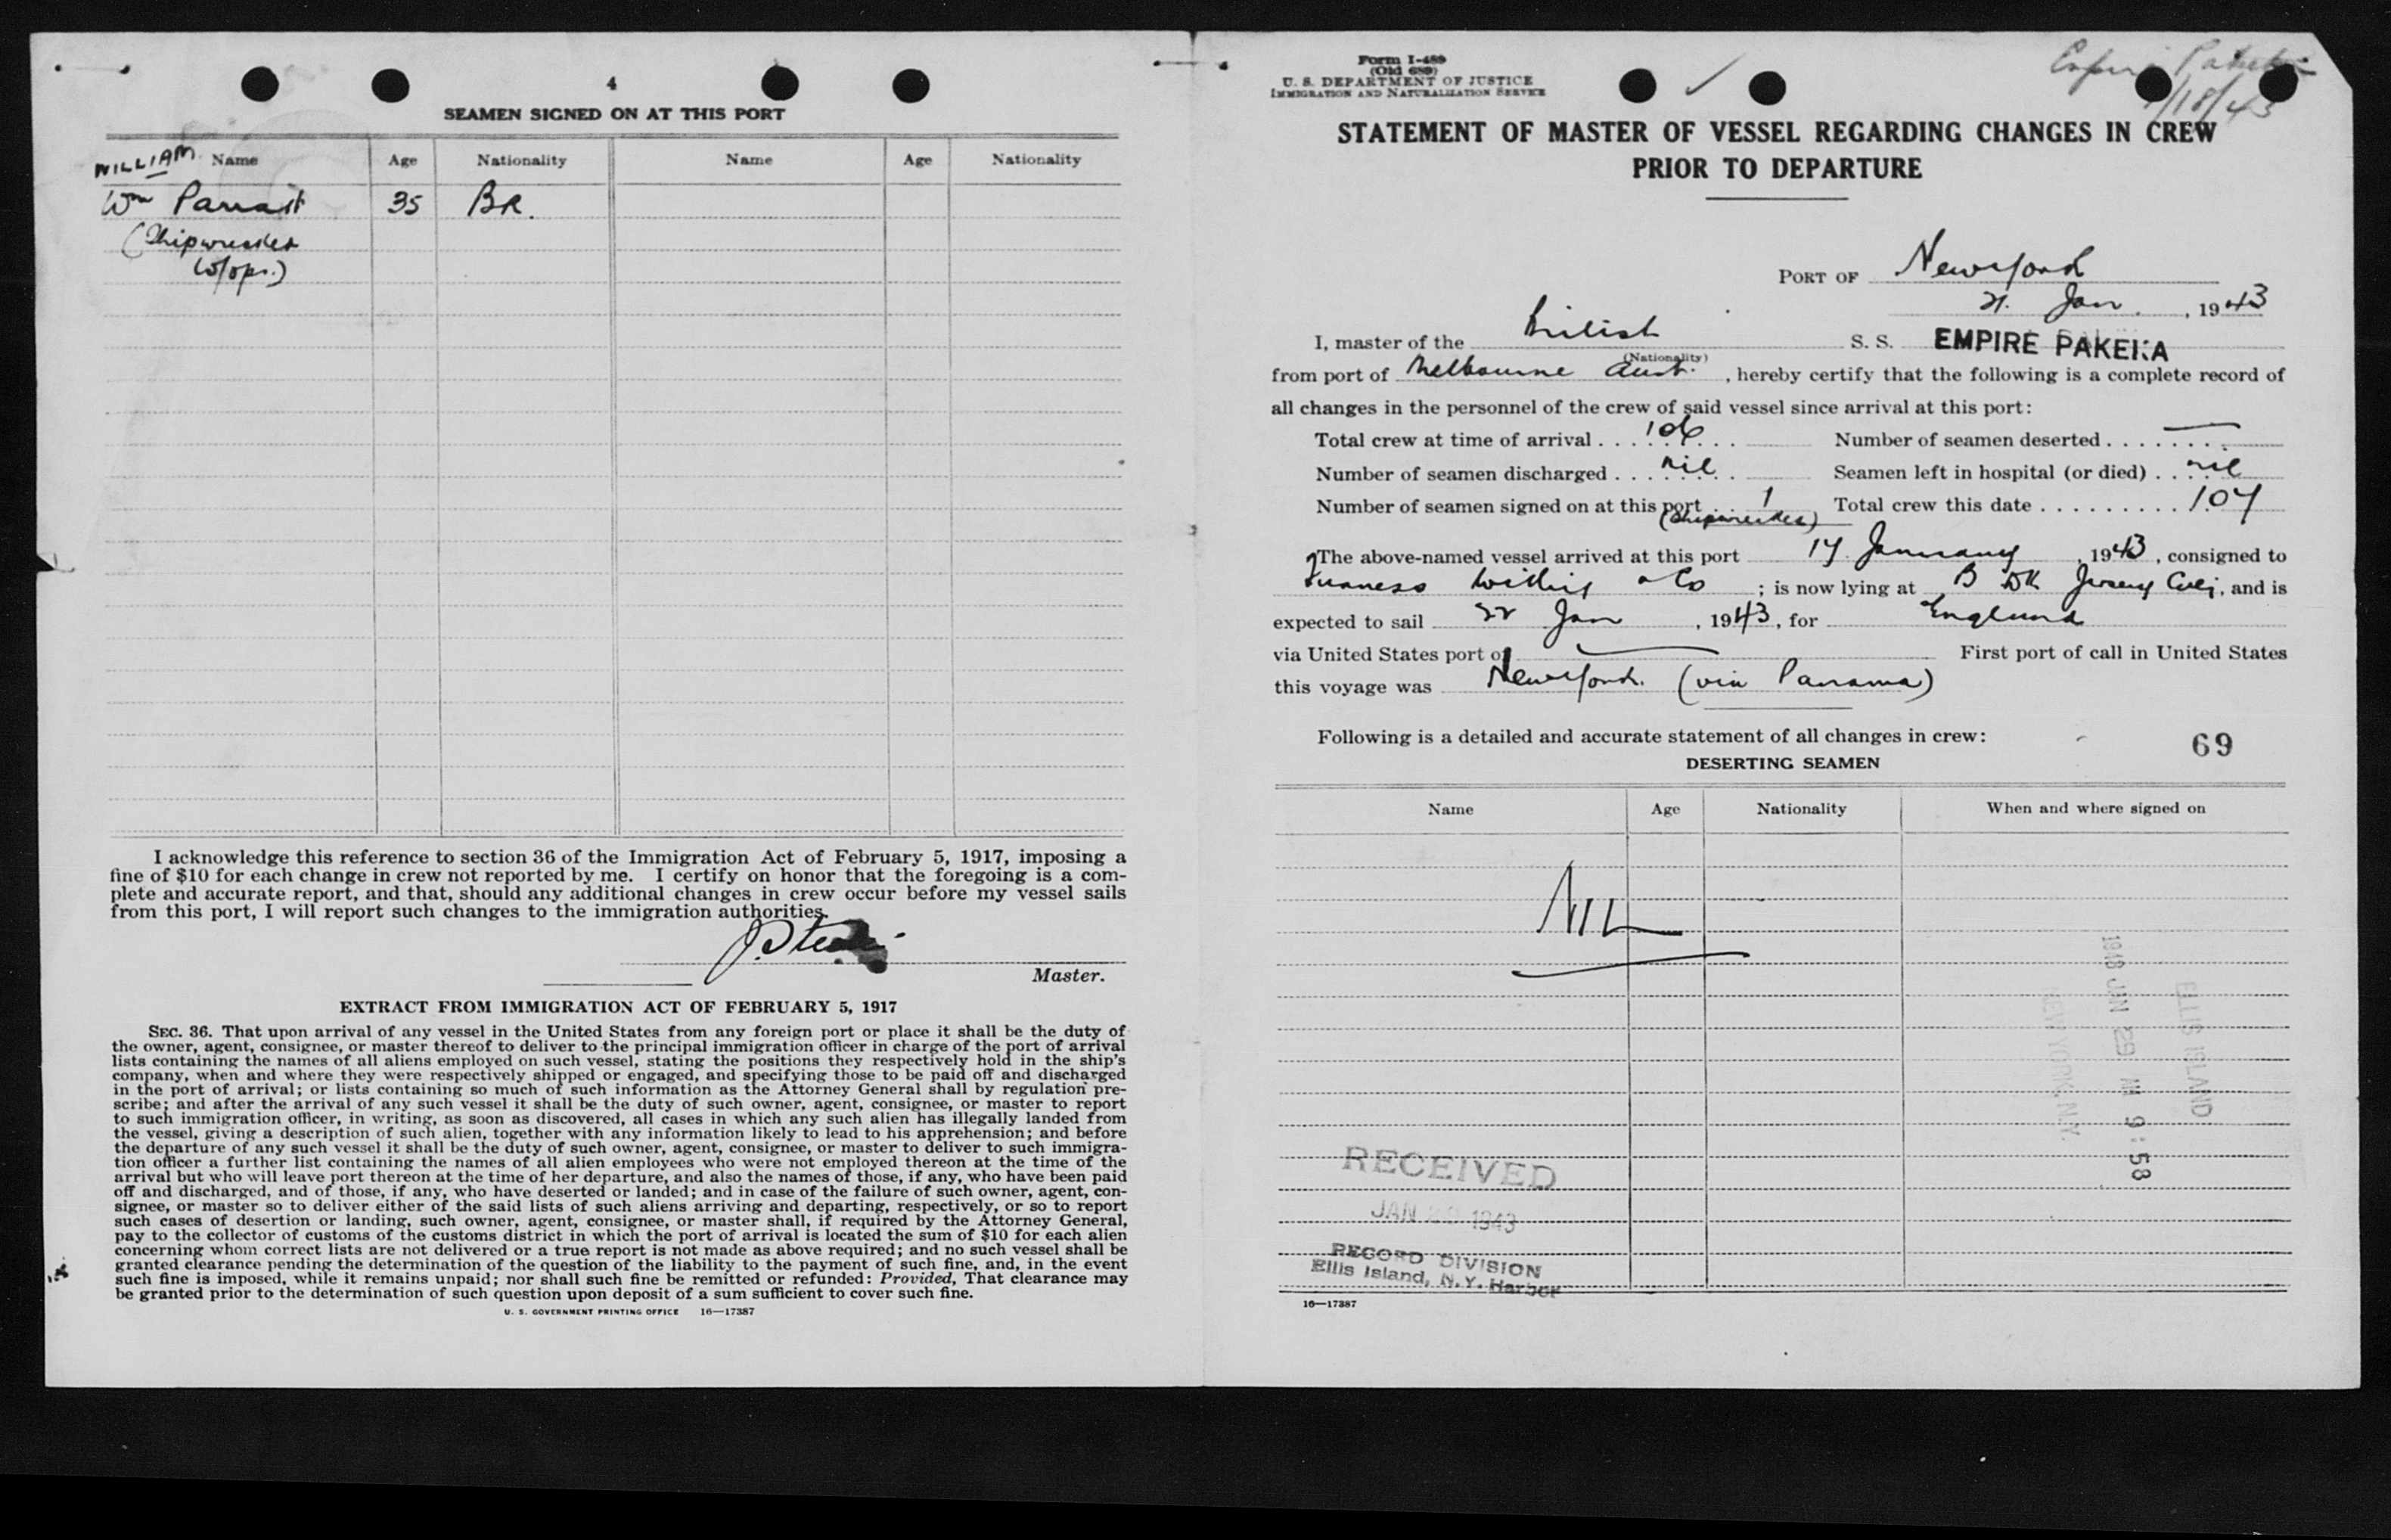 4
SEAMEN SIGNED ON AT THIS PORT
WILLIAM
Name Age Nationality Name Age Nationality
Wm 35 BR.
(Shipwrecked
w/opr.)
I acknowledge this reference to section 36 of the Immigration Act of February 5, 1917, imposing a
fine of $10 for each change in crew not reported by me. I certify on honor that the foregoing is a com-
plete and accurate report, and that, should any additional changes in crew occur before my vessel sails
from this port, I will report such changes to the immigration authorities.
Master.
EXTRACT FROM IMMIGRATION ACT OF FEBRUARY 5, 1917
SEC. 36. That upon arrival of any vessel in the United States from any foreign port or place it shall be the duty of
the owner, agent, consignee, or master thereof to deliver to the principal immigration officer in charge of the port of arrival
lists containing the names of all aliens employed on such vessel, stating the positions they respectively hold in the ship's
company, when and where they were respectively shipped or engaged, and specifying those to be paid off and discharged
in the port of arrival; or lists containing so much of such information as the Attorney General shall by regulation pre-
scribe; and after the arrival of any such vessel it shall be the duty of such owner, agent, consignee, or master to report
to such immigration officer, in writing, as soon as discovered, all cases in which any such alien has illegally landed from
the vessel, giving a description of such alien, together with any information likely to lead to his apprehension; and before
the departure of any such vessel it shall be the duty of such owner, agent, consignee, or master to deliver to such immigra-
tion officer a further list containing the names of all alien employees who were not employed thereon at the time of the
arrival but who will leave port thereon at the time of her departure, and also the names of those, if any, who have been paid
off and discharged, and of those, if any, who have deserted or landed; and in case of the failure of such owner, agent, con-
signee, or master so to deliver either of the said lists of such aliens arriving and departing, respectively, or so to report
such cases of desertion or landing, such owner, agent, consignee, or master shall, if required by the Attorney General,
pay to the collector of customs of the customs district in which the port of arrival is located the sum of $10 for each alien
concerning whom correct lists are not delivered or a true report is not made as above required; and no such vessel shall be
granted clearance pending the determination of the question of the liability to the payment of such fine, and, in the event
such fine is imposed, while it remains unpaid; nor shall such fine be remitted or refunded: Provided, That clearance may
be granted prior to the determination of such question upon deposit of a sum sufficient to cover such fine.
U. S. GOVERNMENT PRINTING OFFICE 16—17387
Form I-489
(Old 689)
U. S. DEPARTMENT OF JUSTICE
IMMIGRATION AND NATURALIZATION SERVICE
1/18/43
STATEMENT OF MASTER OF VESSEL REGARDING CHANGES IN CREW
PRIOR TO DEPARTURE
PORT OF New York
21. Jan., 1943
I, master of the British S. S. EMPIRE PAKEHA
(Nationality)
from port of Melbourne Aust., hereby certify that the following is a complete record of
all changes in the personnel of the crew of said vessel since arrival at this port:
Total crew at time of arrival . . . 106 . . . Number of seamen deserted . . . . . . . —
Number of seamen discharged . . . nil . . Seamen left in hospital (or died) . . nil
Number of seamen signed on at this port . . 1 Total crew this date . . . . . . . . . 107
(Shipwrecked)
The above-named vessel arrived at this port 17 January, 1943, consigned to
Furness Withy & Co; is now lying at B Dk Jersey City, and is
expected to sail 22 Jan, 1943, for England
via United States port of — First port of call in United States
this voyage was New York. (via Panama)
Following is a detailed and accurate statement of all changes in crew:
69
DESERTING SEAMEN
Name Age Nationality When and where signed on
NIL
ELLIS ISLAND
1943 JAN 29 9:58
NEW YORK, N.Y.
RECEIVED
JAN 1943
RECORD DIVISION
Ellis Island, N.Y. Harbor
16—17387